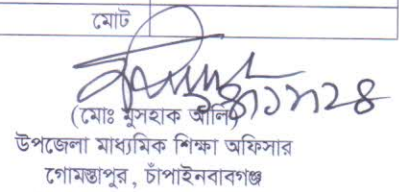 মোট
(মোঃ মুসহাক আলি)
উপজেলা মাধ্যমিক শিক্ষা অফিসার
গোমস্তাপুর, চাঁপাইনবাবগঞ্জ